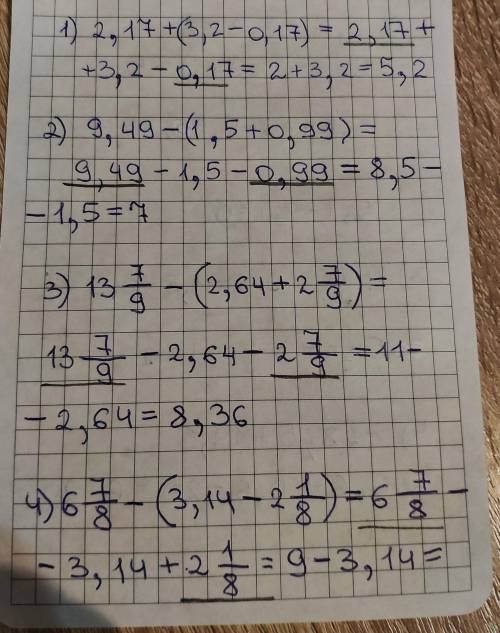 1) 2,17+(3,2-0,17)=2,17+
+3,2-0,17=2+3,2=5,2
2) 9,49-(1,5+0,99)=
9,49-1,5-0,99=8,5-
-1,5=7
3) 13 7/9 - (2,64+2 7/9)=
13 7/9 - 2,64 - 2 7/9 = 11-
-2,64=8,36
4) 6 7/8 - (3,14-2 1/8)=6 7/8 -
-3,14+2 1/8=9-3,14=